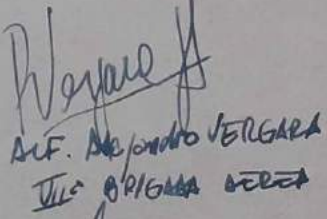 Vergara
ALF. Alejandro VERGARA
VIIª BRIGADA AEREA